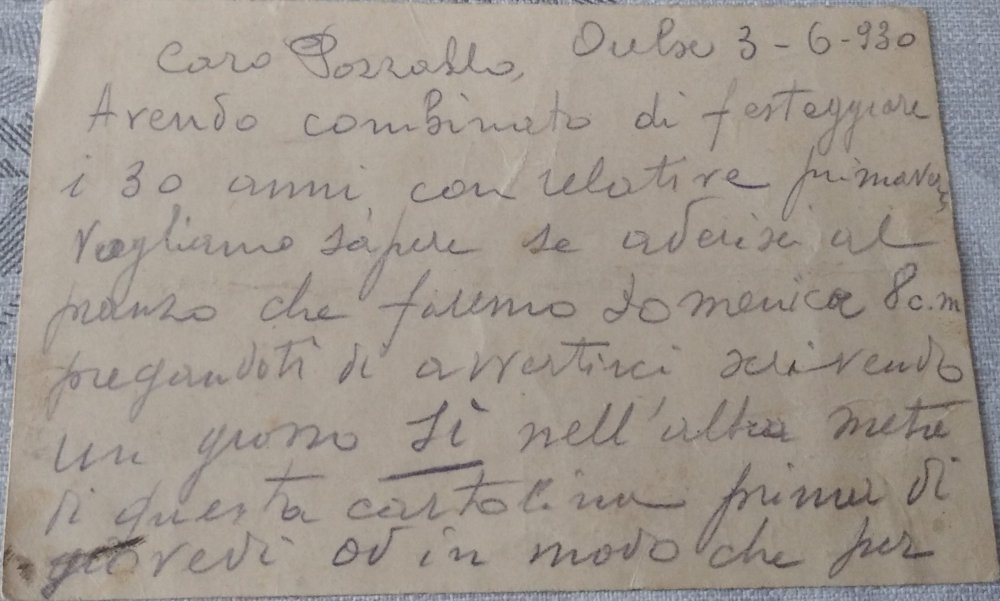 Oulx 3-6-930
Caro
Avendo combinato di festeggiare
i 30 anni con relative primavere
Vogliamo sapere se aderisci al
pranzo che faremo domenica 8 c.m
pregandoti di avvertirci scrivendo
un grosso Sì nell'altra metà
di questa cartolina prima di
giovedì od in modo che per